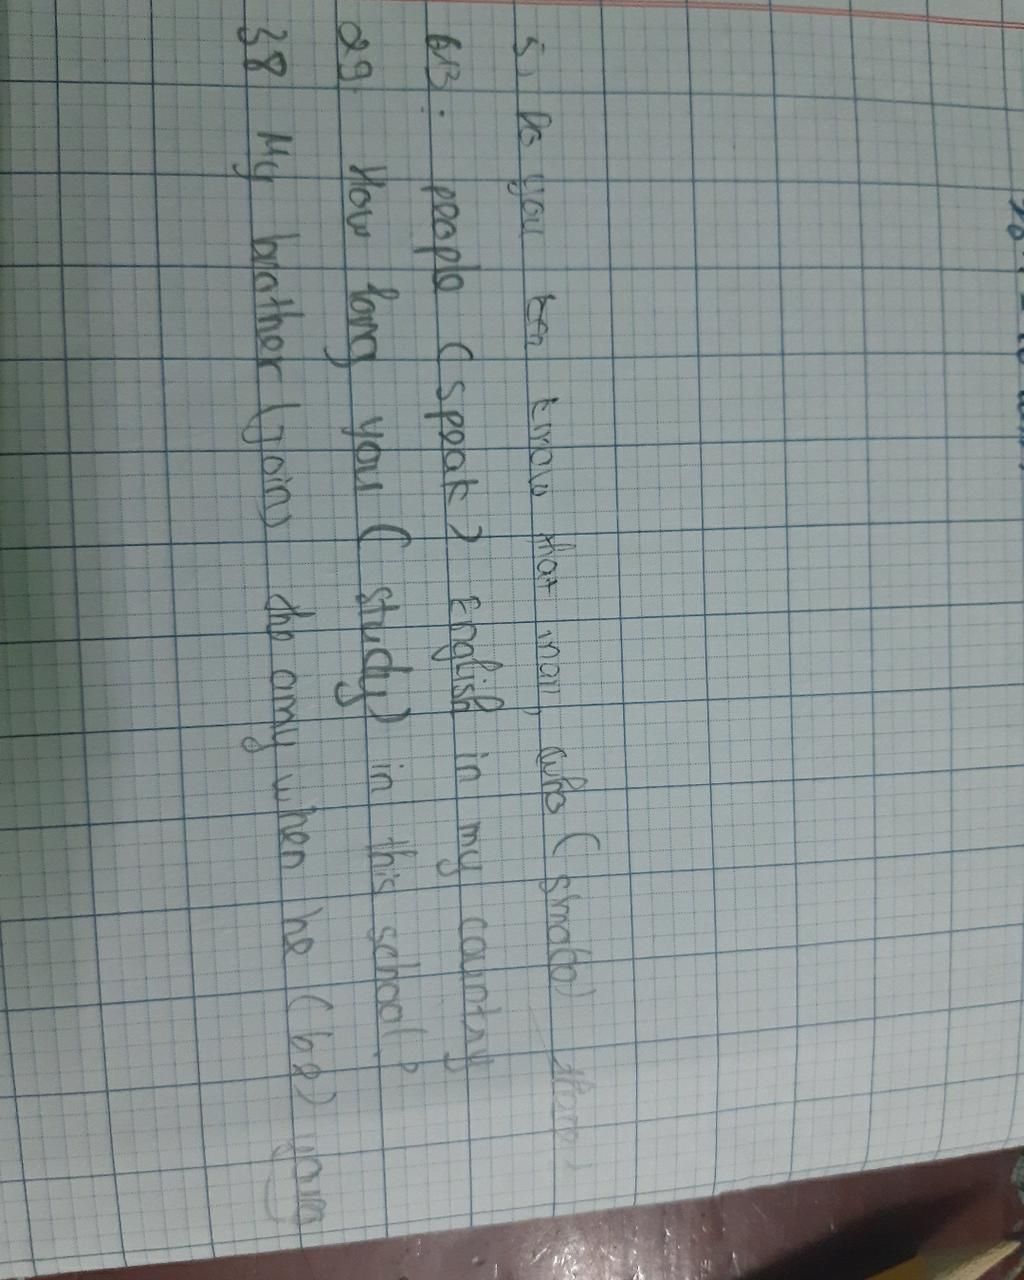 5, Do you know that man, who (smoke) there)
613. people (speak) English in my country
29. How long you (study) in this school?
38 My brother (join) the amy when he (be) young